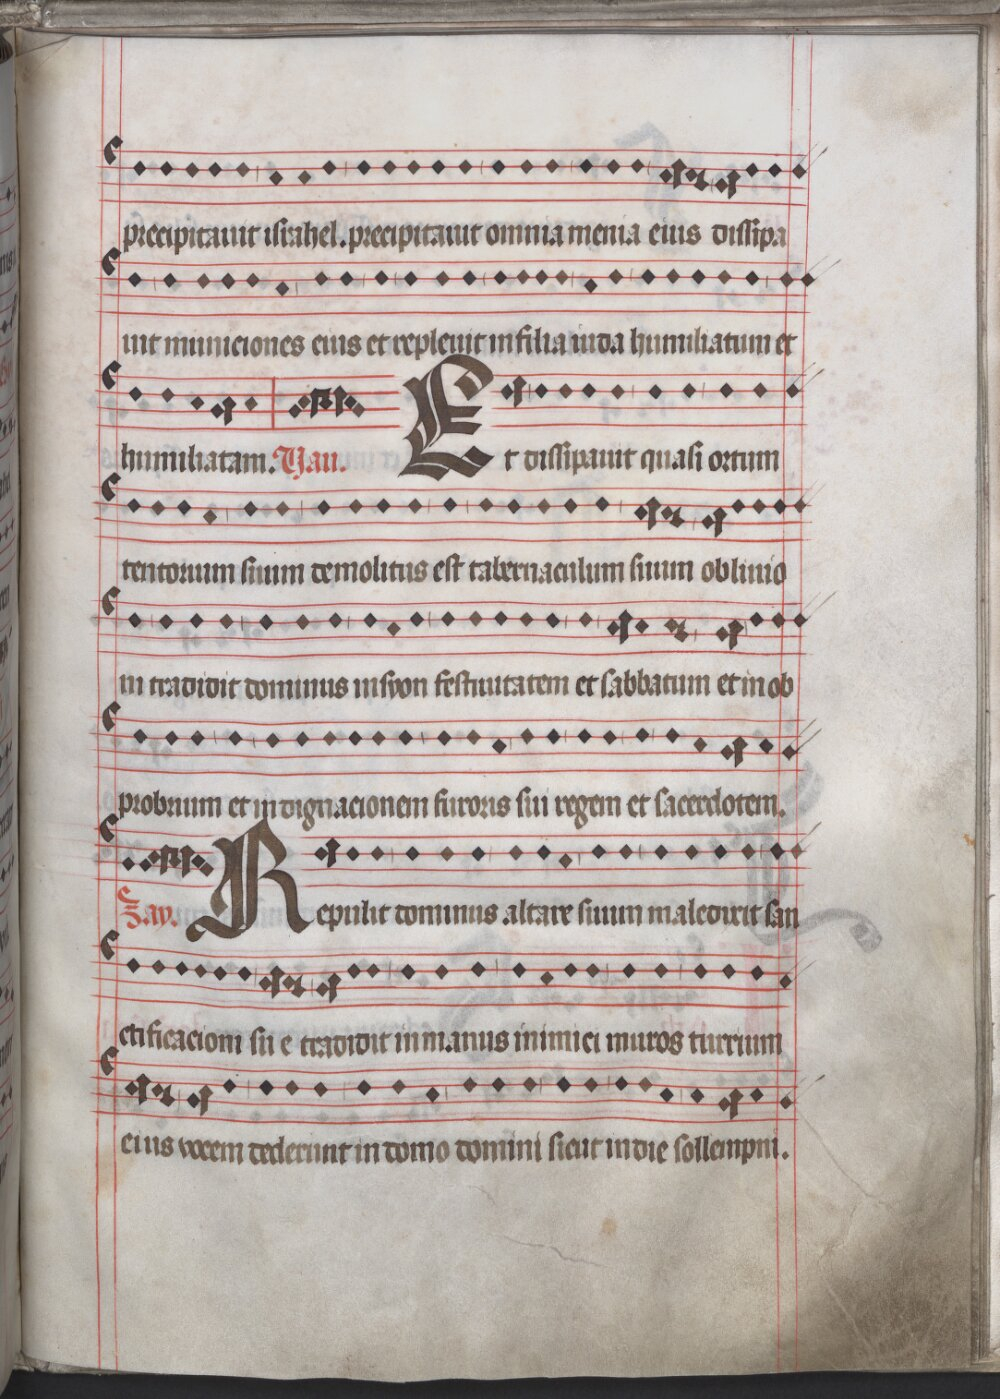 precipitauit israhel. precipitauit omnia menia eius dissipa
uit municiones eius et repleuit in filia iuda humiliatum et
humiliatam. Vau. Et dissipauit quasi ortum
tentorium suum demolitus est tabernaculum suum obliuio
ni tradidit dominus in syon festiuitatem et sabbatum et in ob
probrium et indignacionem furoris sui regem et sacerdotem.
Zay. Repulit dominus altare suum maledixit san
ctificacioni sue tradidit in manus inimici muros turrium
eius vocem dederunt in domo domini sicut in die sollempni.